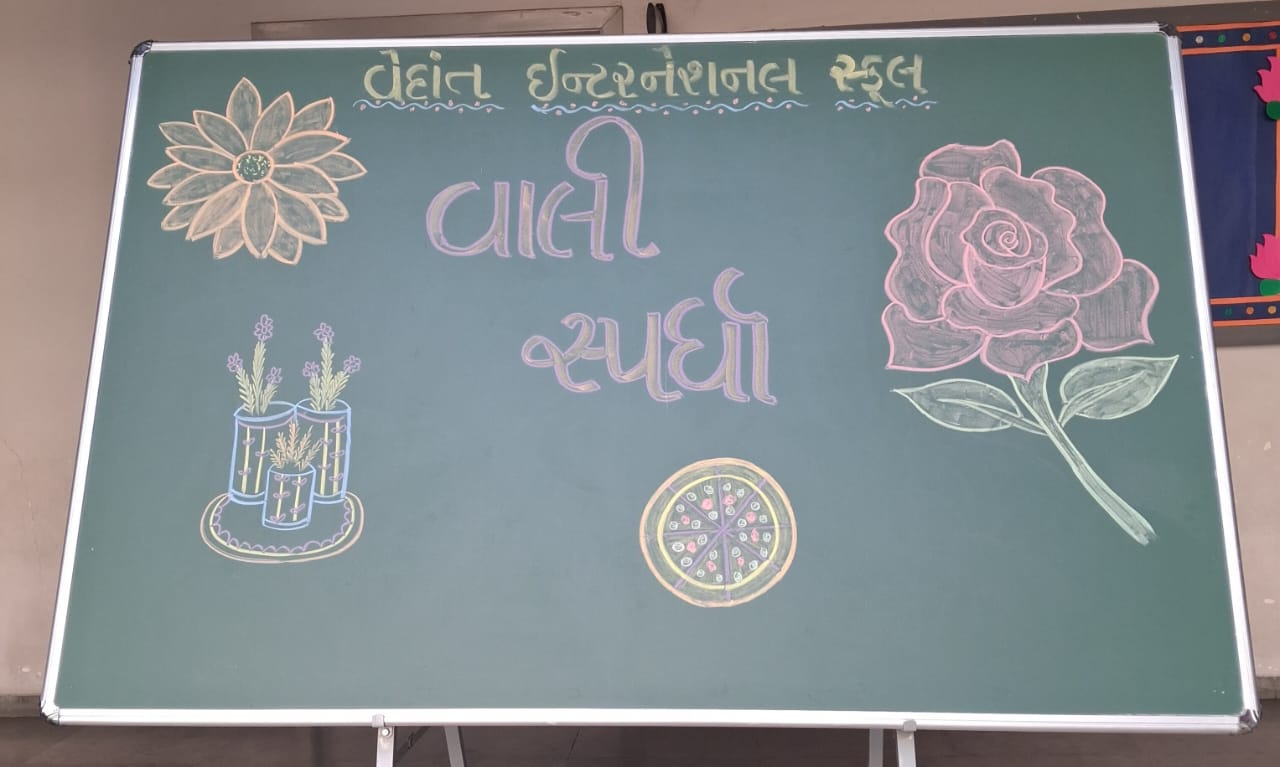 વેદાંત ઈન્ટરનેશનલ સ્કૂલ
વાલી
સ્પર્ધા